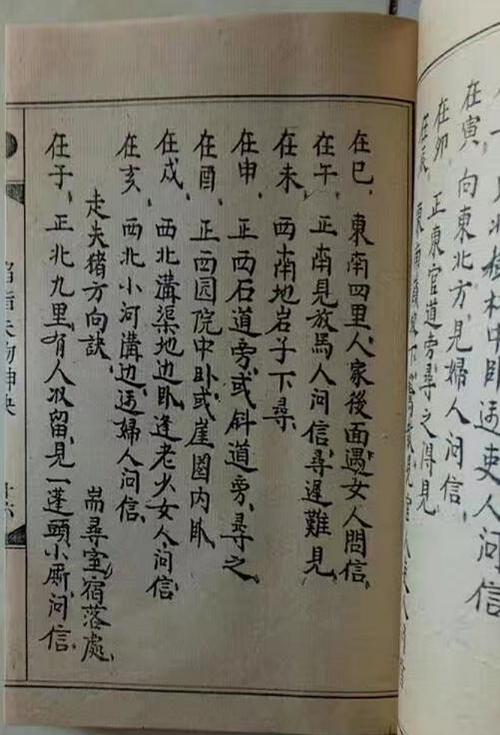 在寅，向東北方，見婦人问信，
在卯，正東官道旁，尋之得見，
在巳，東南四里，人家後面，遇女人問信，
在午，正南見放馬人问信，尋遲難見，
在未，西南地岩子下尋，
在申，正西石道旁，或斜道旁，尋之，
在酉，正西园院中卧，或崖圈内卧，
在戌，西北溝渠地边卧，逢老少女人问信，
在亥，西北小河溝边，遇婦人问信，
走失猪方向訣，耑尋室宿落處，
在子，正北九里，有人收留，見一蓬頭小厮，问信，
掐指失物神决
十六